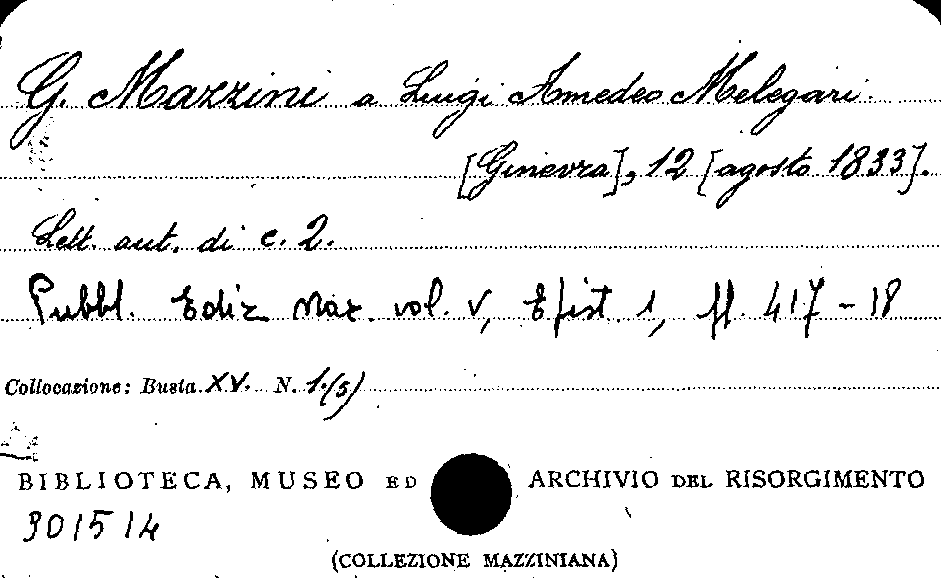 G. Mazzini a Luigi Amedeo Melegari.
[Ginevra], 12 [agosto 1833].
Lett. aut. di c. 2.
Pubbl. Ediz Naz. vol. V, Epist. 1, pp. 417-18
Collocazione: Busta XV. N. 1.(5)
BIBLIOTECA, MUSEO ED ARCHIVIO DEL RISORGIMENTO
901514
(COLLEZIONE MAZZINIANA)